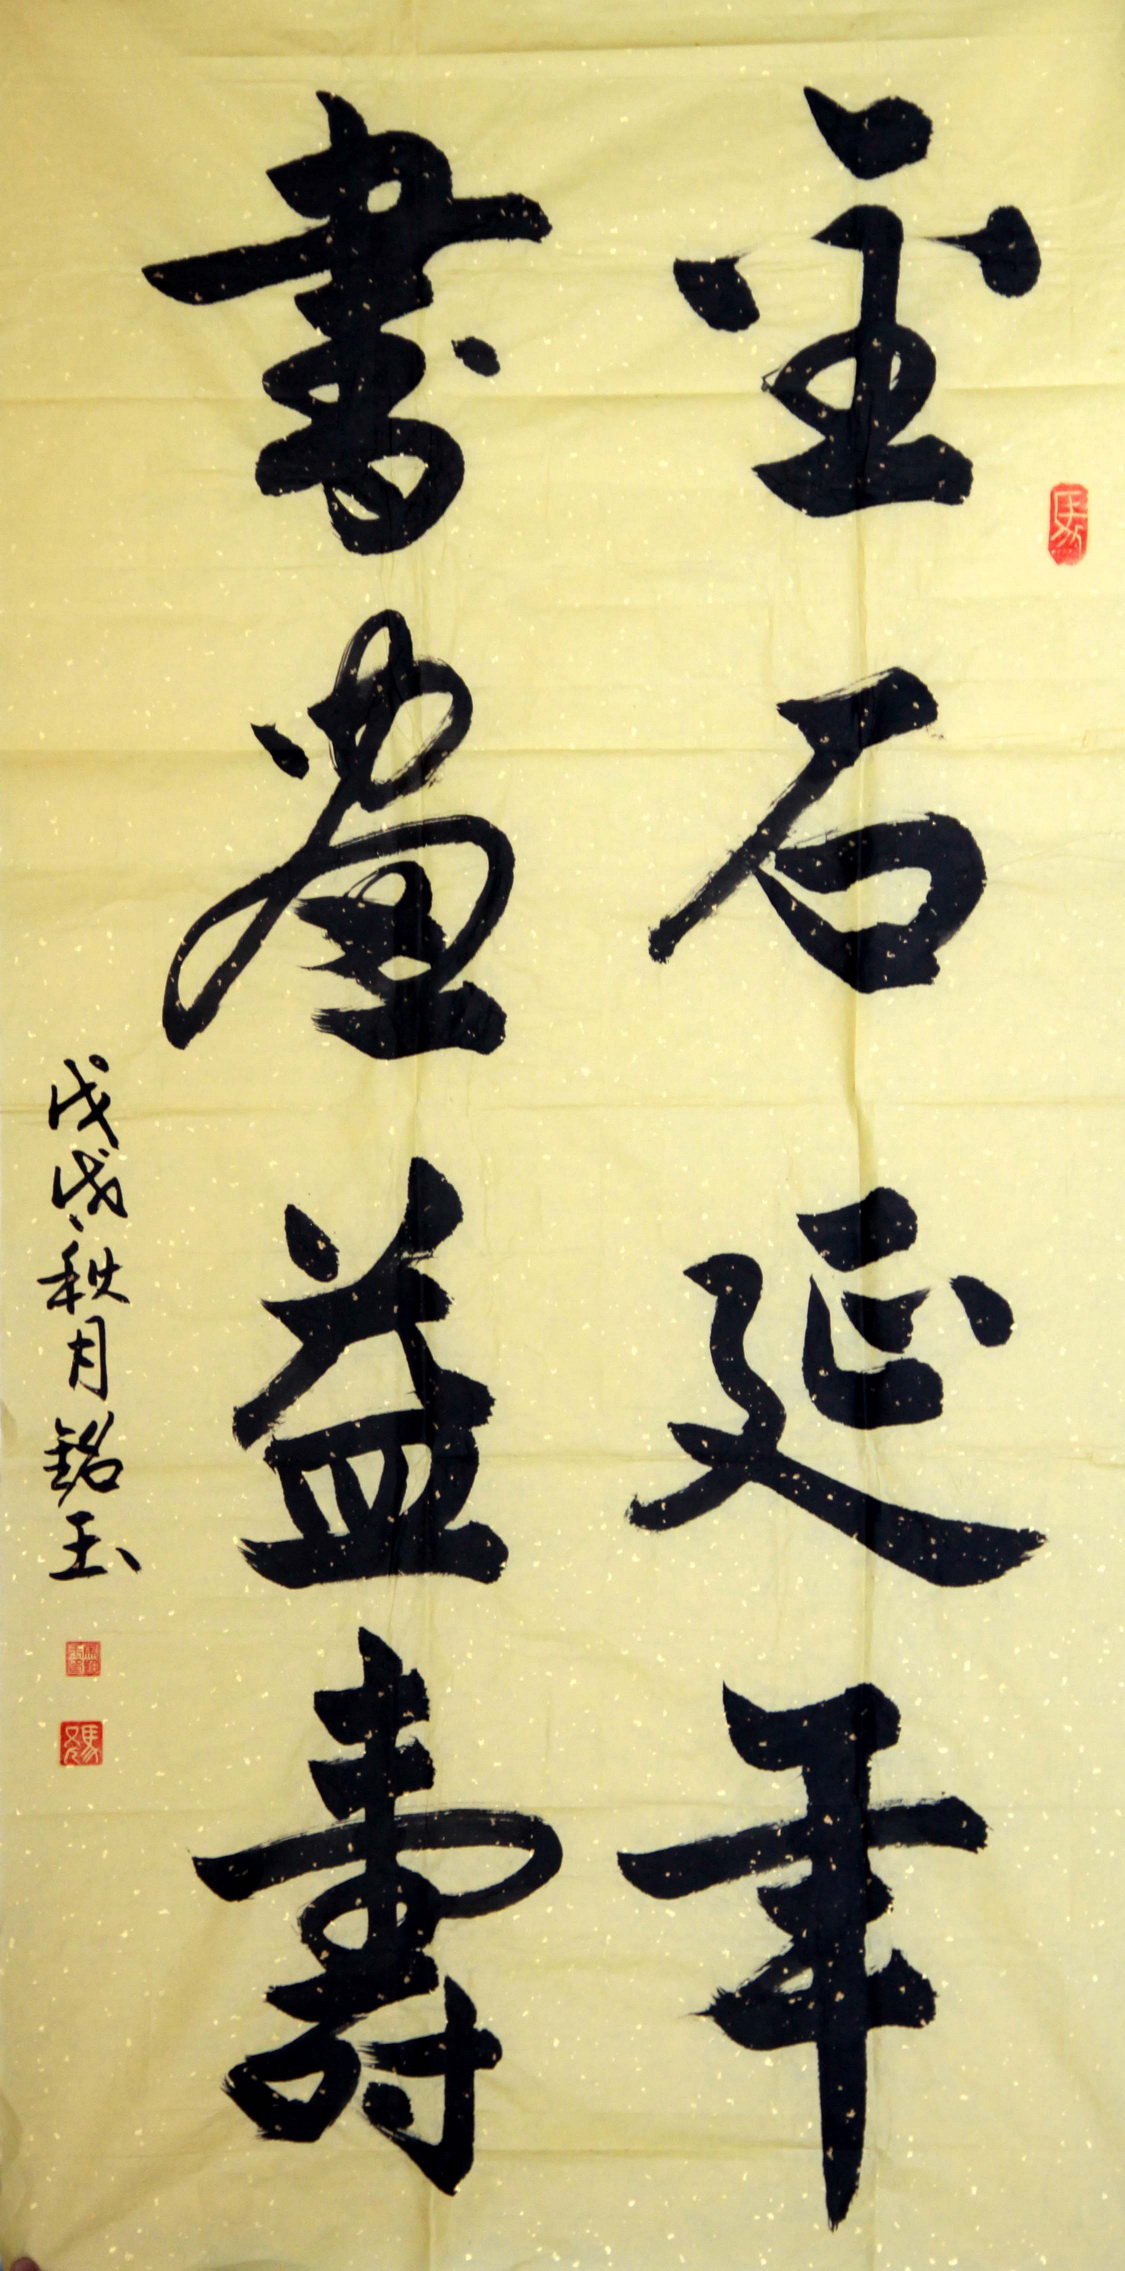 金石延年
書畫益壽
戊戌秋月銘玉